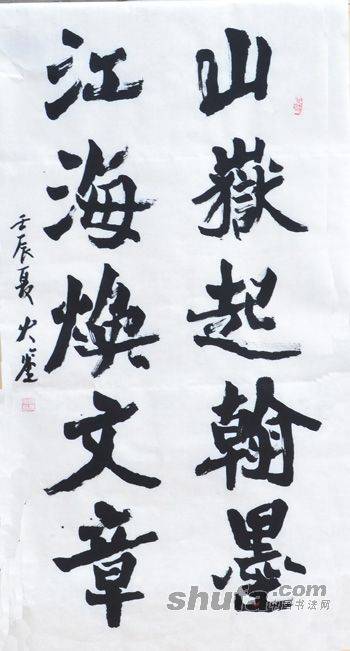 山嶽起翰墨
江海焕文章
壬辰夏
shufa.com
中国书法网